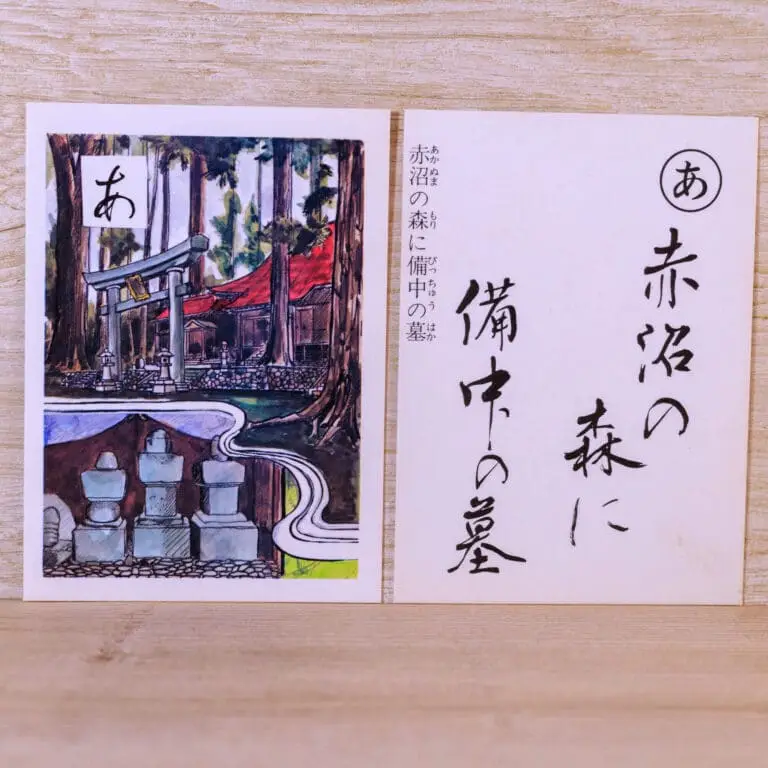 あ
あ
赤沼の
森に
備中の墓
赤沼の森に備中の墓
あか ぬま もり びっちゅう はか